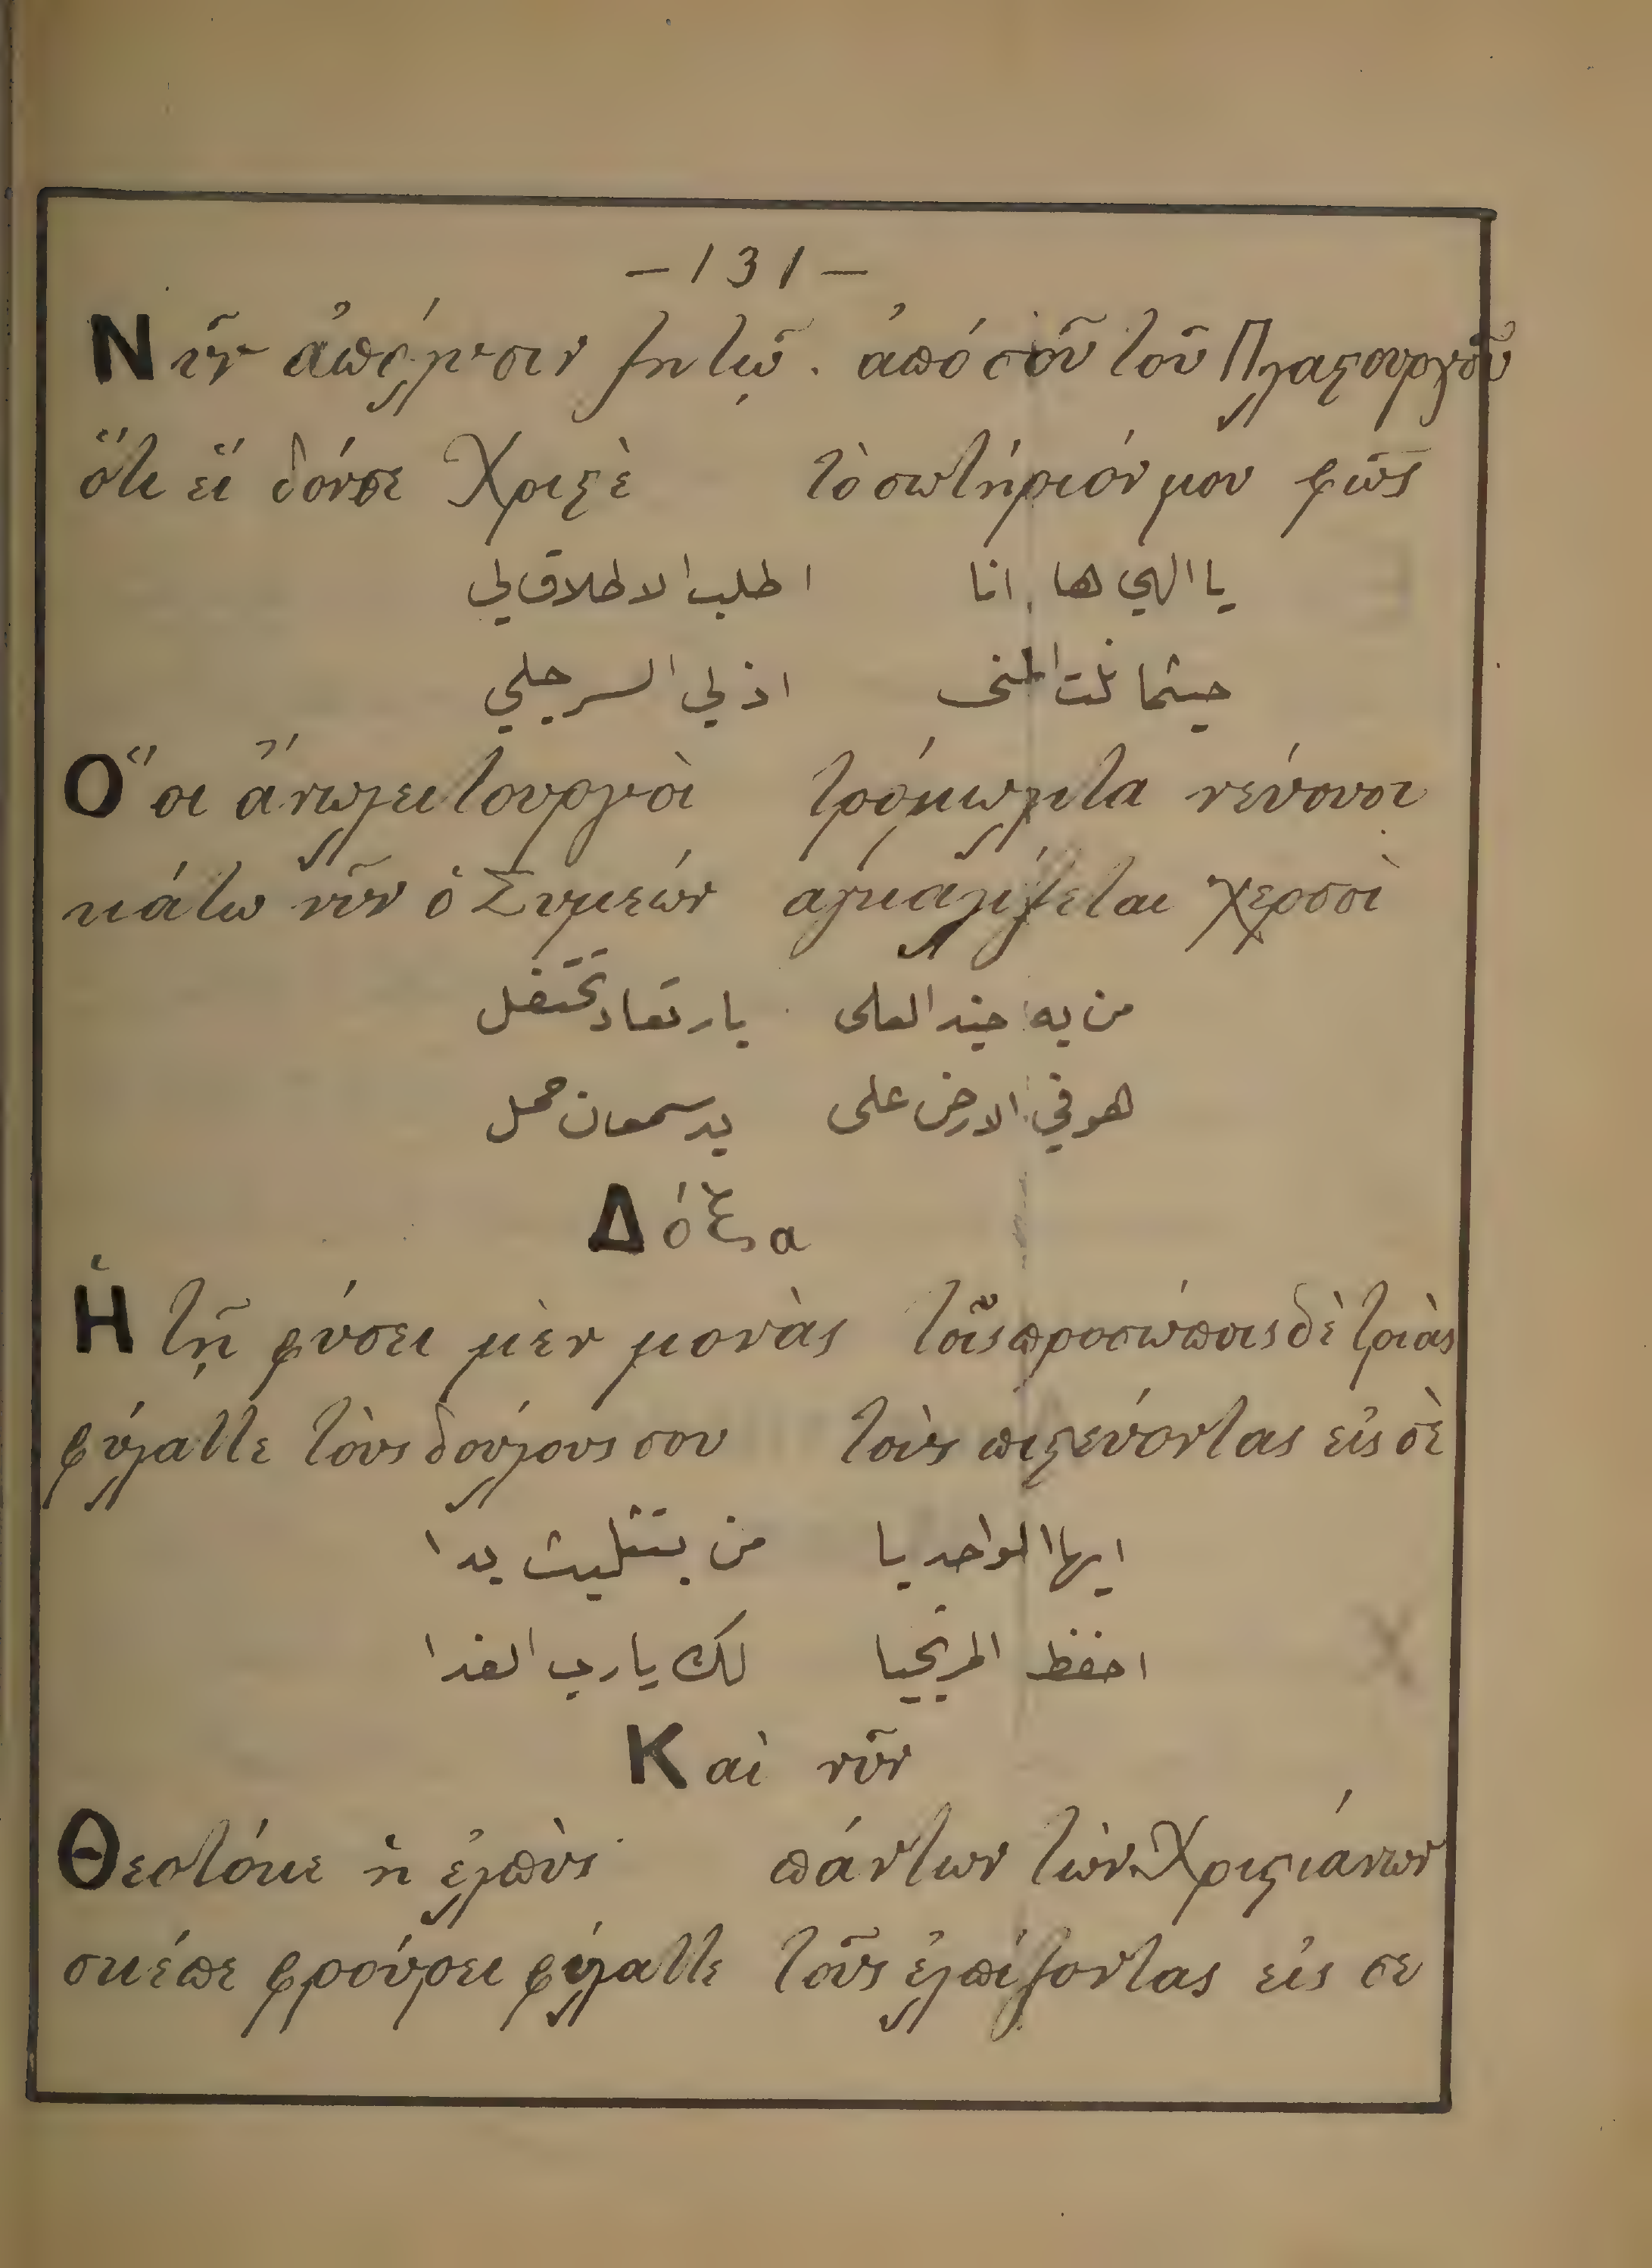 — 131 —
Νῦν ἀπόλυσιν ζητῶ. ἀπό σοῦ τοῦ Πλαστουργοῦ
ὅτι εἴ δόνσε Χριστὲ τὸ σωτήριόν μου φῶς
يا الهي ها انا اطلب الاطلاق لي
حيثما نلت المنى اذ لي السر جلي
Ὅ οι ἄνω λειτουργοὶ τρόμω λιτα νεύουσι
κάτω νῦν ὁ Συμεών αγκαλίζεται χερσσὶ
من به جند العلى بارتعاد تحتفل
هو في الارض على يد سمعان حمل
Δόξα
Ἡ τῇ φύσει μὲν μονὰς τοῖς προσώποις δὲ τριὰς
φύλαττε τὸυς δούλους σου τοὺς πιστεύοντας εἰς σὲ
ايها الواحد يا من بتثليث بدا
احفظ المرتجيا لك يا رب الفدا
Καὶ νῦν
Θεοτόκε ἡ ἐλπὺς πάντων τὼν Χριστιάνων
σκέπε φρούρει φύλαττε τοῦς ἐλπίζοντας εἰς σε